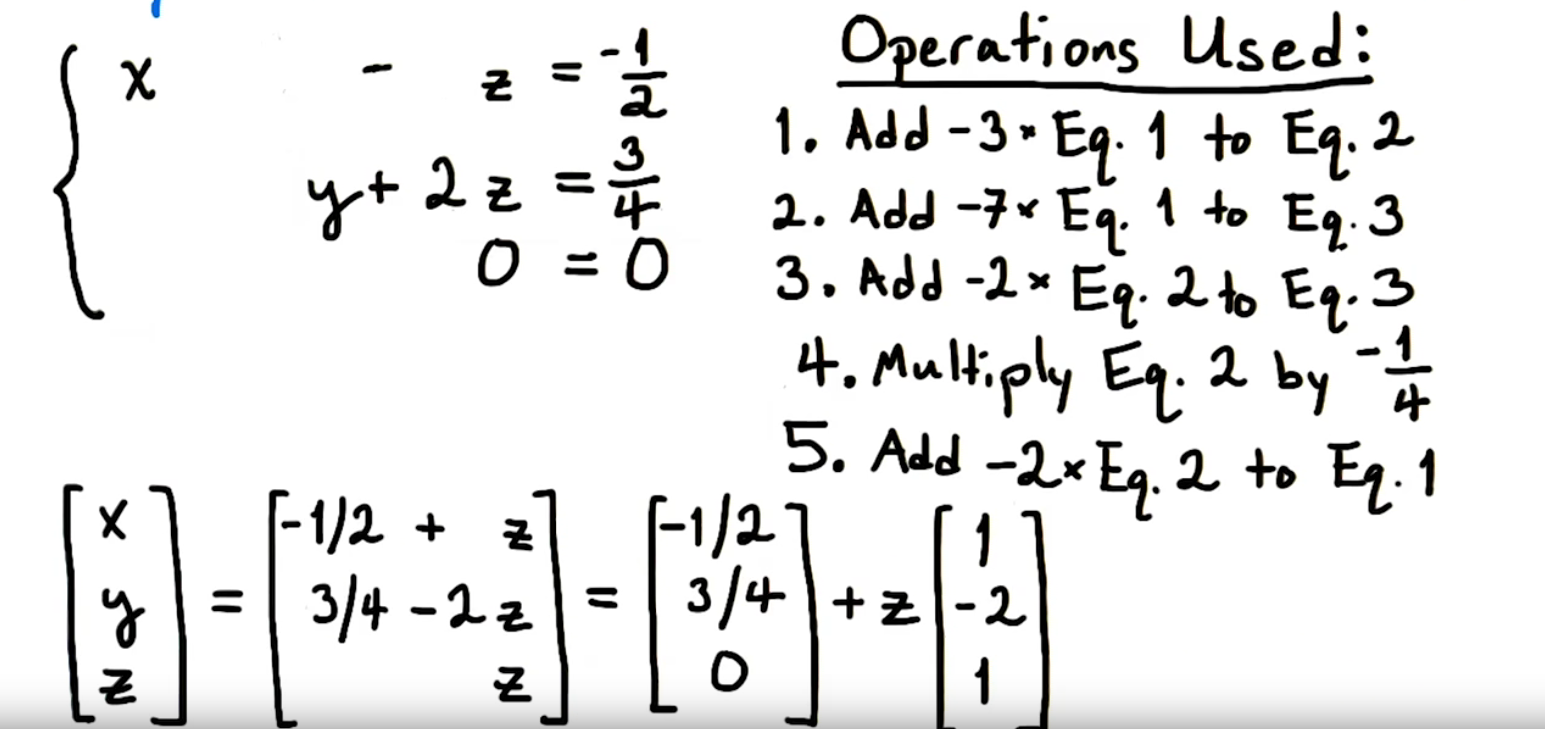 x - z = -1/2
y + 2z = 3/4
0 = 0
Operations Used:
1. Add -3 × Eq. 1 to Eq. 2
2. Add -7 × Eq. 1 to Eq. 3
3. Add -2 × Eq. 2 to Eq. 3
4. Multiply Eq. 2 by -1/4
5. Add -2 × Eq. 2 to Eq. 1
[x y z] = [-1/2 + z 3/4 - 2z z] = [-1/2 3/4 0] + z [1 -2 1]